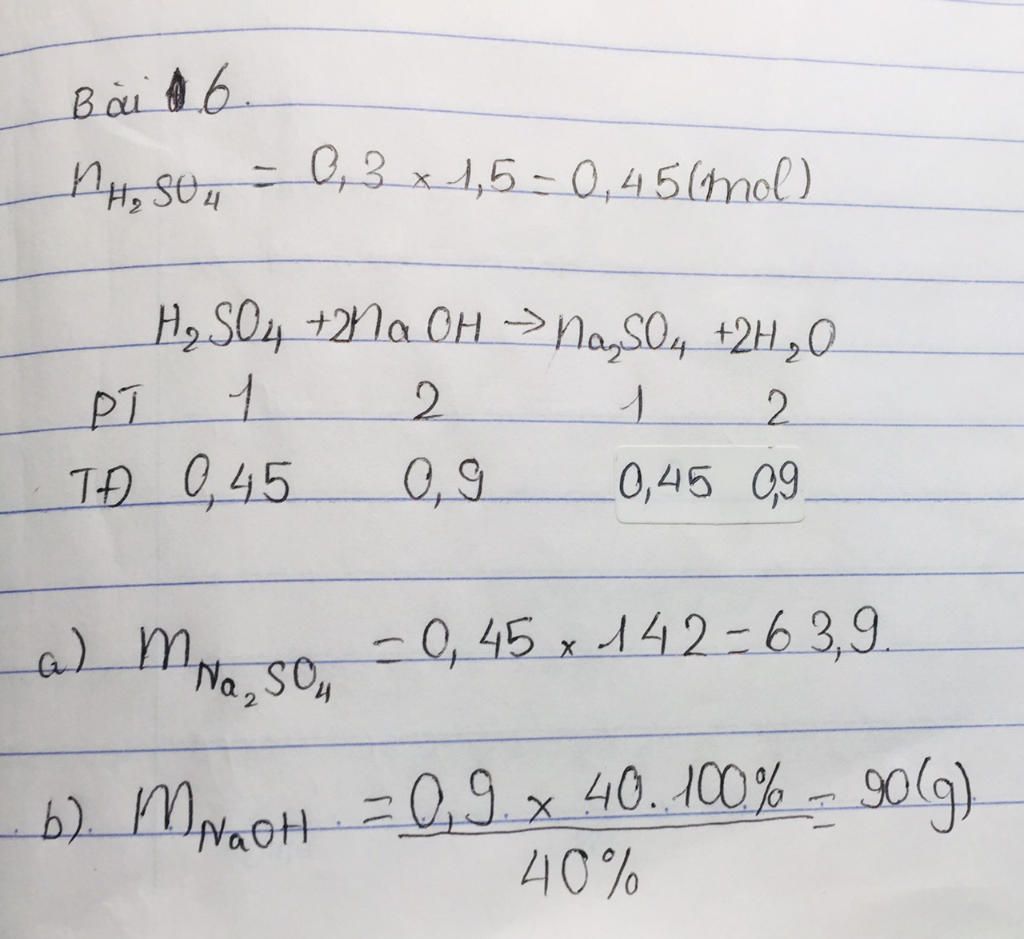 Bài 6.
n H₂SO₄ = 0,3 × 1,5 = 0,45(mol)
H₂SO₄ + 2NaOH → Na₂SO₄ + 2H₂O
PT 1 2 1 2
TĐ 0,45 0,9 0,45 0,9
a) m Na₂SO₄ = 0,45 × 142 = 63,9.
b) m NaOH = 0,9 × 40. 100% = 90(g)
40%